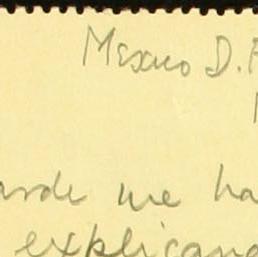 Mexico D.F
arde me ha
explicand